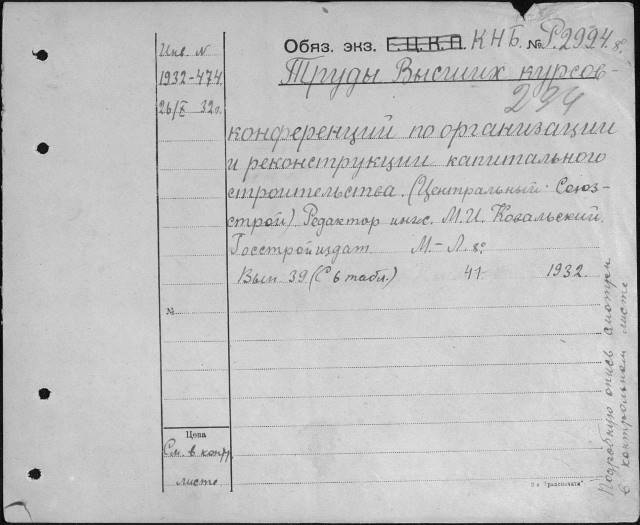 Инв. N
1932-474.
26/X 32 г.
Обяз. экз. Е.Ц.К.П. КНБ. № P.2994. 8°.
Труды Высших курсов-
294
конференций по организации
и реконструкции капитального
строительства. (Центральный Союз-
строй) Редактор инж. М.И. Ковальский.
Госстройиздат М.-Л. 8°
Вып. 39 (С 6 табл.) 41 1932.
№
Цена
См. в контр.
листе
Подробную опись смотреть
в контрольном листе